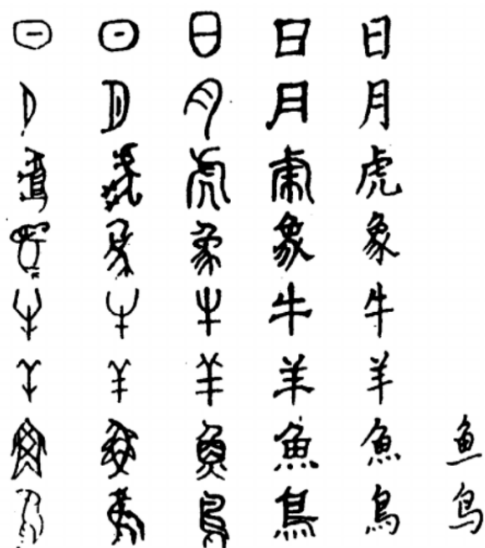 日 日 日 日 日
月 月 月 月 月
虎 虎 虎 虎 虎
象 象 象 象 象
牛 牛 牛 牛 牛
羊 羊 羊 羊 羊
魚 魚 魚 魚 魚 鱼
鳥 鳥 鳥 鳥 鳥 鸟